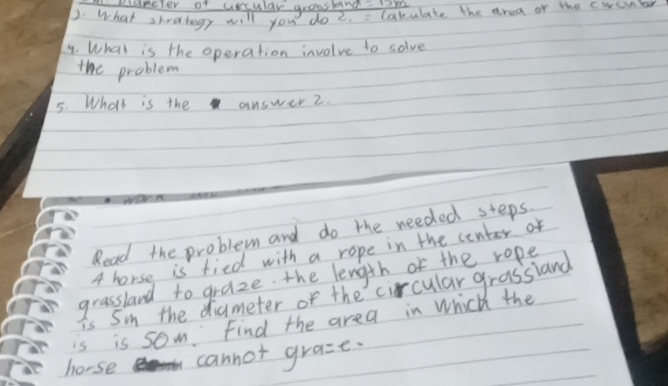 Diameter of circular grassland = 15m
3. What strategy will you do ? = Calculate the area of the circular
4. What is the operation involve to solve
the problem
5. What is the answer ?
Read the problem and do the needed steps.
A horse is tied with a rope in the center of
grassland to graze. the length of the rope
is 5m the diameter of the circular grassland
is is 50 m. Find the area in which the
horse cannot graze.